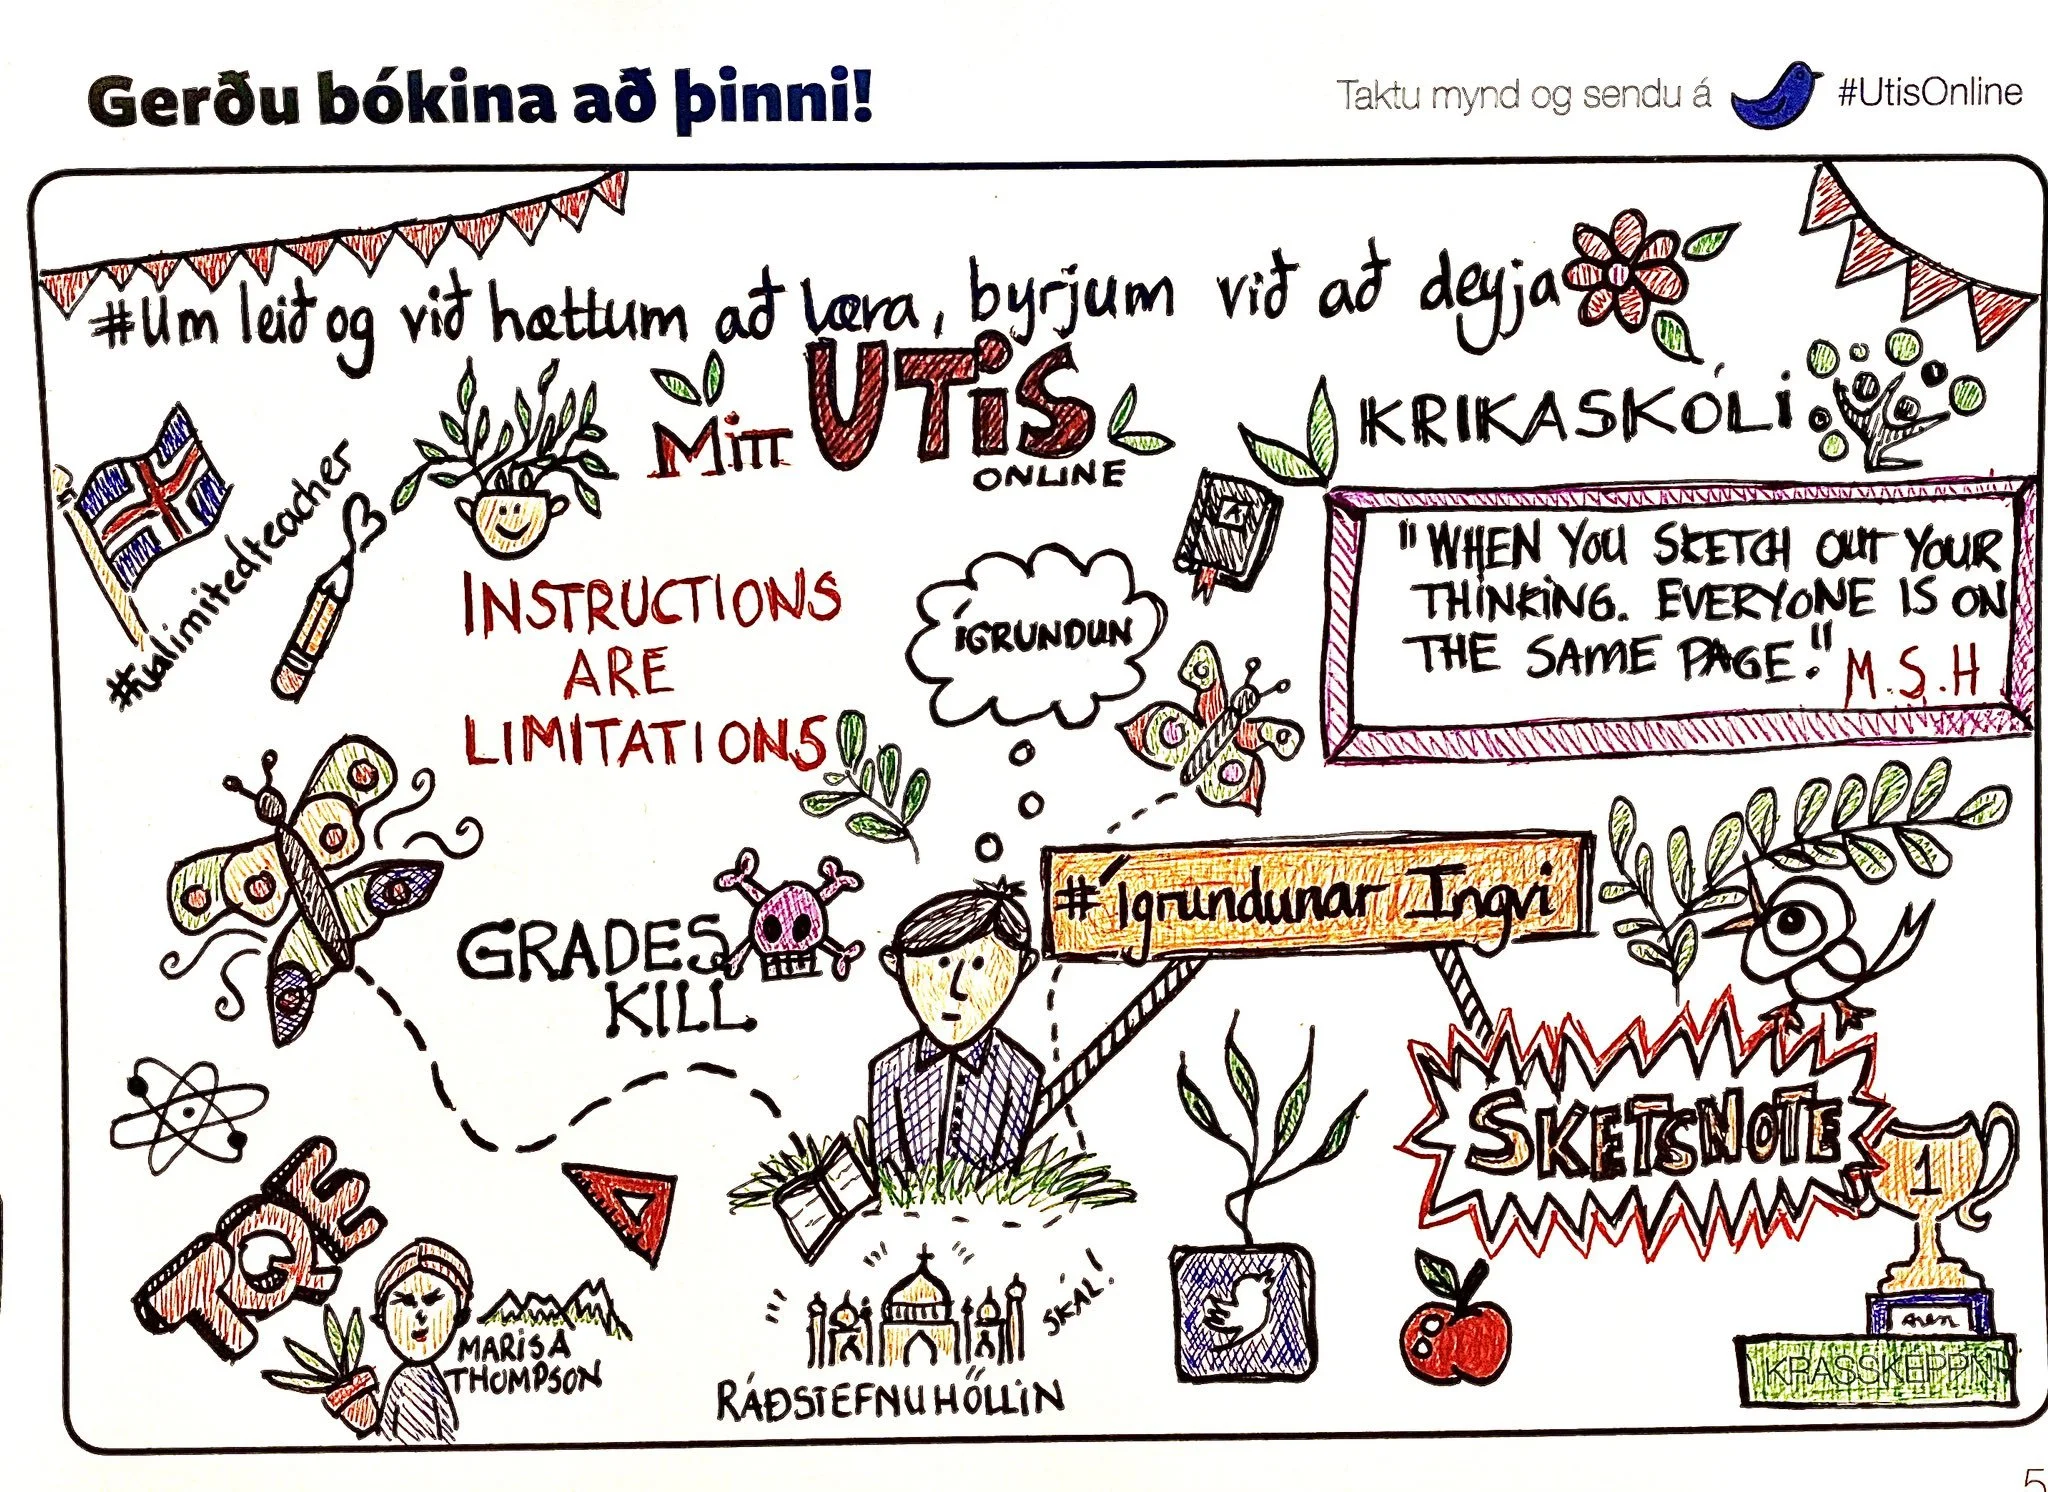 Gerðu bókina að þinni!
Taktu mynd og sendu á #UtisOnline
#Um leið og við hættum að læra, byrjum við að deyja
MITT UTIS
ONLINE
KRIKASKÓLI
"WHEN YOU SKETCH OUT YOUR
THINKING. EVERYONE IS ON
THE SAME PAGE."
M.S.H
INSTRUCTIONS
ARE
LIMITATIONS
ÍGRUNDUN
#Ígrundunar Ingvi
GRADES
KILL
SKETSNOTE
1
TQE
MARISA
THOMPSON
SKÁL!
RÁÐSTEFNUHÖLLIN
KRASSKEPPNI
5